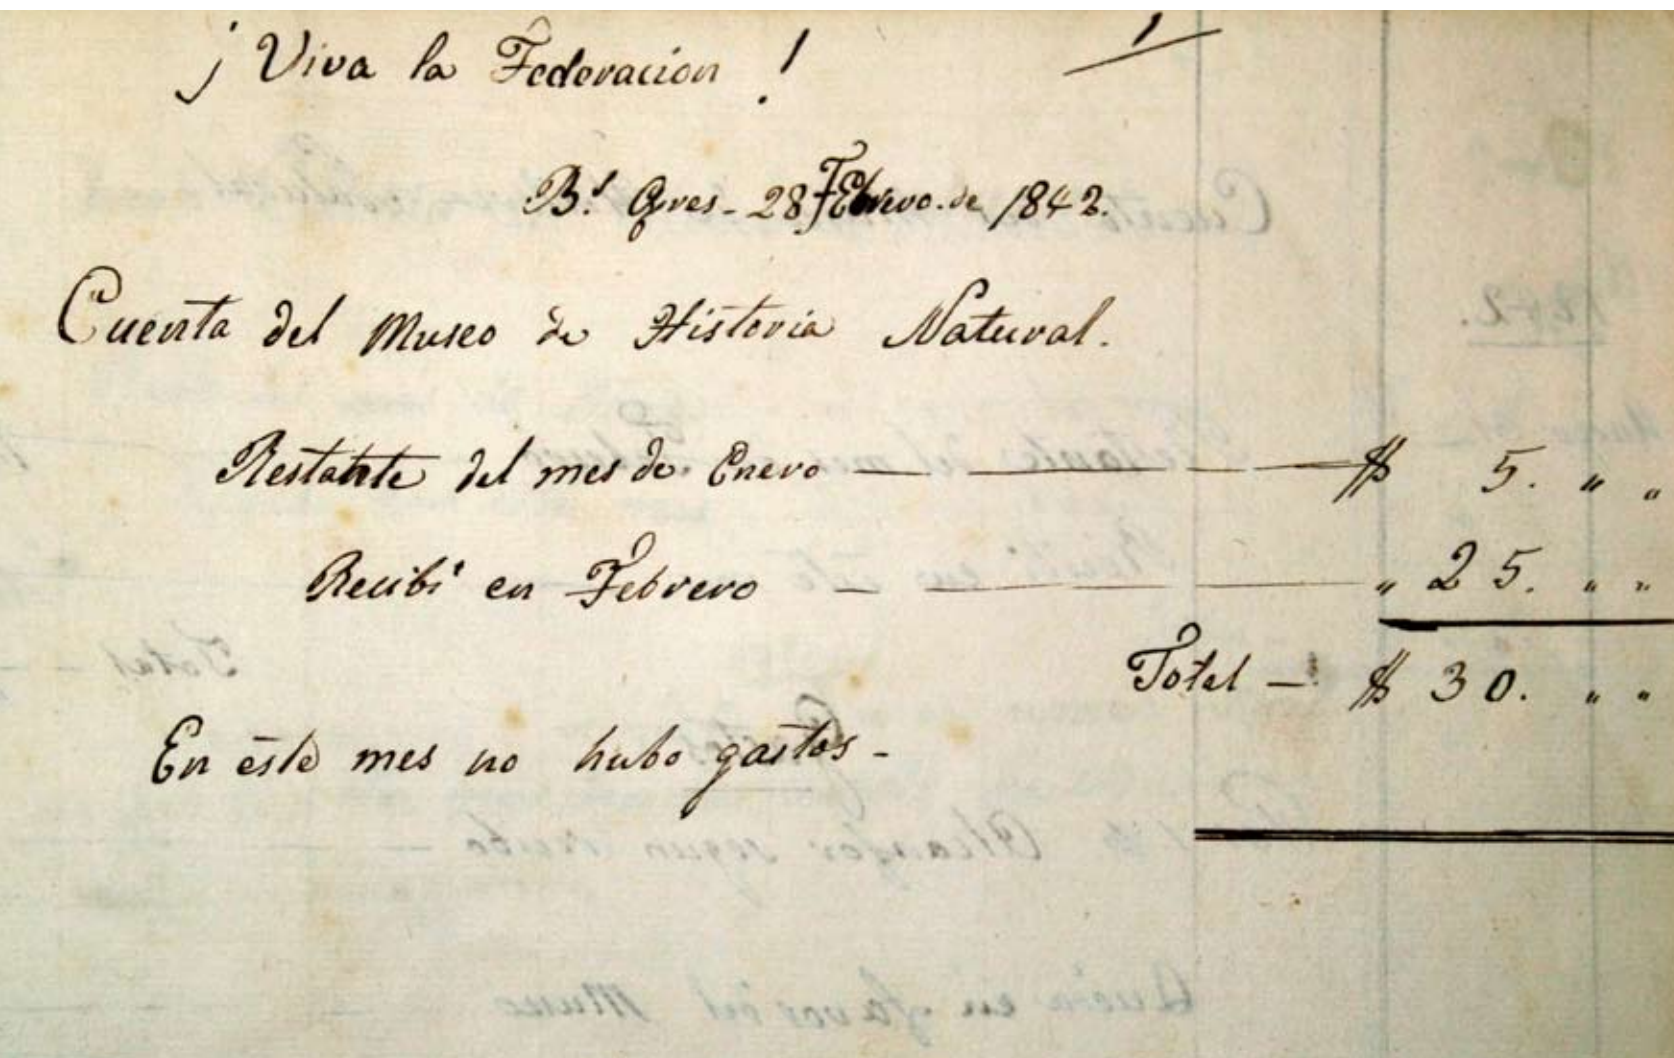 ¡Viva la Federacion!
1
B.s Ayres - 28 Febrero. de 1842.
Cuenta del Museo de Historia Natural.
Restante del mes de Enero — $ 5. " "
Recibi en Febrero — " 25. " "
Total — $ 30. " "
En éste mes no hubo gastos -